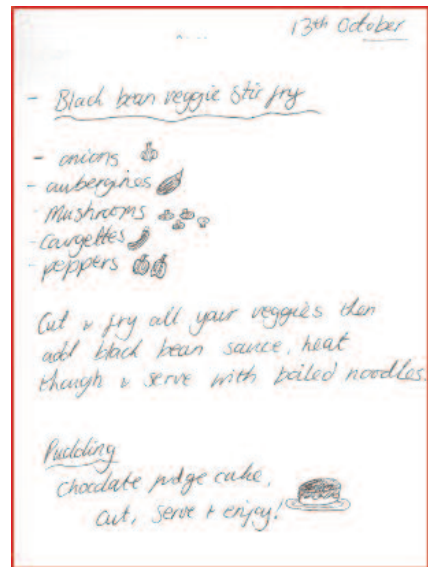 13th October
- Black bean veggie stir fry
- onions
- aubergines
- Mushrooms
- Courgettes
- peppers
Cut & fry all your veggies then
add black bean sauce, heat
though & serve with boiled noodles.
Pudding
Chocolate fudge cake,
Cut, serve & enjoy!